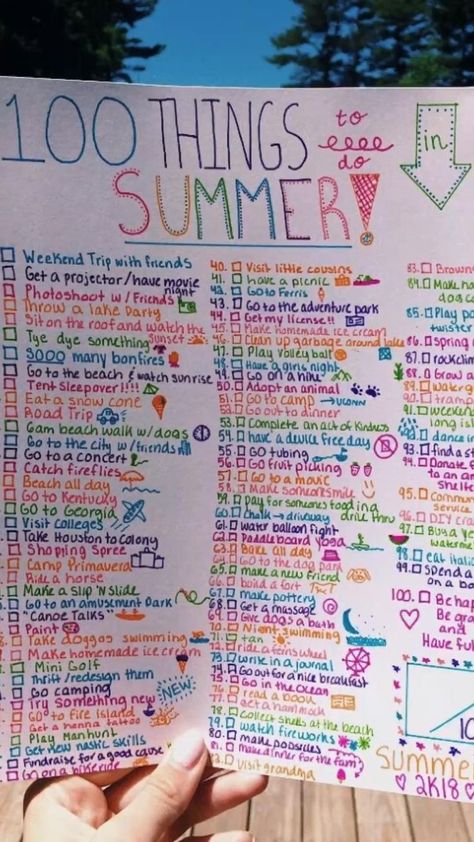 100 THINGS to do in
SUMMER!
Weekend Trip with friends
Get a projector/have movie night
Photoshoot w/ Friends
Throw a lake Party
Sit on the roof and watch the sunset
Tye dye something
3000 many bonfires
Go to the beach & watch sunrise
Tent Sleepover!!!!
Eat a snow cone
Road Trip
6am beach walk w/dogs
Go to the city w/friends
Go to a concert
Catch fireflies
Beach all day
Go to Kentucky
Go to Georgia
Visit Colleges
Take Houston to Colony
Shopping Spree
Camp Primavera
Ride a horse
Make a slip 'N slide
Go to an amusement Park
"Canoe Talks"
Paint
Take doggos swimming
Make homemade ice cream
Mini Golf
Thrift/redesign them
Go camping
Try something new NEW!
Go to Fire Island
Get a henna tattoo
Play Manhunt
Get new nastic skills
Fundraise for a good cause
Go on a bike ride
40. Visit little cousins
41. have a picnic
42. Go to Ferris
43. Go to the adventure park
44. Get my license!!
45. Make homemade ice cream
46. Clean up garbage around lake
47. Play Volley ball
48. Have a girls night
49. Go on a hike
50. Adopt an animal
51. Go to camp → UCONN
52. Go out to dinner
53. Complete an act of Kindness
54. have a device free day
55. GO tubing
56. Go fruit picking
57. Go to a movie
58. Make someone smile
59. pay for someones food in a drive thru
60. Chalk → driveway
61. water balloon fight
62. Paddle board Yoga
63. Bake all day
64. Go to the dog park
65. make a new friend
66. build a fort
67. make pottery
68. Get a massage
69. Give dogs a bath
70. Night swimming
71. tan
72. ride a ferris wheel
73. write in a journal
74. Go out for a nice breakfast
75. Go in the ocean
76. read a book
77. get a hammock
78. collect shells at the beach
79. watch fireworks
80. make popsicles
81. make dinner for the fam
82. visit grandma
83. Brown
84. Make
85. Play
twister
86. spring
87. rockclim
88. Grow a
89. water
90. tramp
91. weekend
long is
92. dan
93. find a s
94. Donate
to an an
shelte
95. Commu
service
96. DIY c
97. Buy a
waterme
98. eat
99. spend a
on a b
100. Be ha
Be gra
and
Have ful
10
Summe
2K18